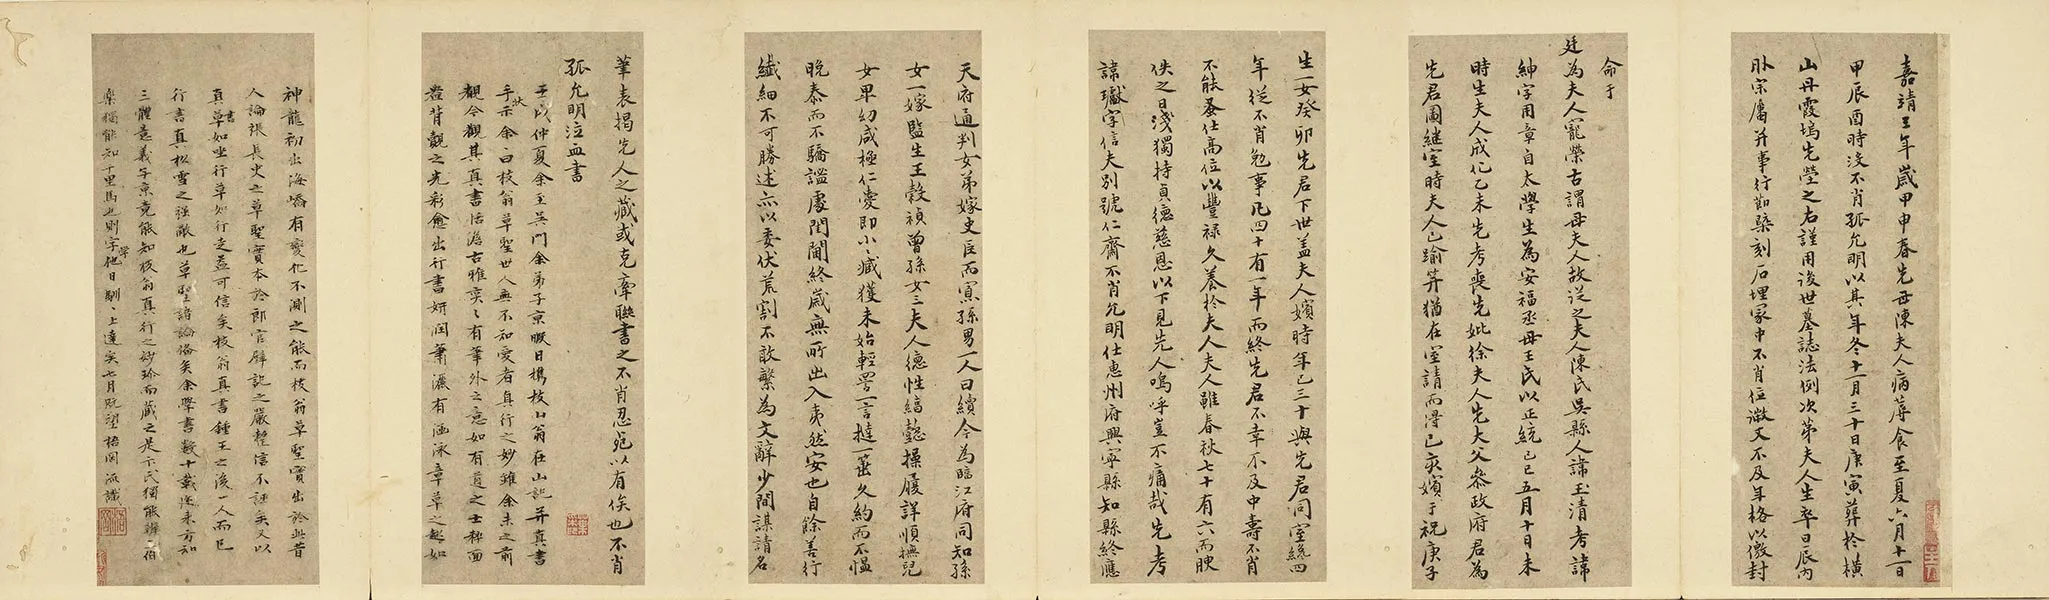 嘉靖三年歲甲申春先母陳夫人病蓐食至夏六月十一日
甲辰酉時沒不肖孤允明以其年冬十一月三十日庚寅葬於橫
山丹霞塢先塋之右謹用後世墓誌法例次第夫人生卒日辰內
外宗屬并事行勒槧刻石埋冢中不肖位微又不及年格以徼封
命于
廷為夫人寵榮古謂母夫人故從之夫人陳氏吳縣人諱玉清考諱
紳字用章自太學生為安福丞母王氏以正統己巳五月十日未
時生夫人成化乙未先考喪先妣徐夫人先大父參政府君為
先君圖繼室時夫人已踰笄猶在室請而得已亥嬪于祝庚子
生一女癸卯先君下世蓋夫人嬪時年已三十與先君同室纔四
年從不肖勉事凡四十有一年而終先君不幸不及中壽不肖
不能蚤仕高位以豐祿久養於夫人夫人雖春秋七十有六而腴
佚之日淺獨持貞德慈恩以下見先人嗚呼豈不痛哉先考
諱瓛字信夫別號仁齋不肖允明仕惠州府興寧縣知縣終應
天府通判女弟嫁史臣而寡孫男一人曰續今為臨江府同知孫
女一嫁監生王穀禎曾孫女三夫人德性縞懿操履詳順撫兒
女卑幼咸極仁愛即小臧獲未始輕詈一言撻一箠久約而不慍
晚泰而不驕謐處閨閫終歲無所出入夷然安也自餘善行
纖細不可勝述亦以委伏荒割不敢繁為文辭少間謀請名
筆表揭先人之藏或克牽聯書之不肖忍死以有俟也不肖
孤允明泣血書
壬戌仲夏余至吳門余弟子京暇日攜枝山翁在山記并真書
狀
手示余曰枝翁草聖世人無不知愛者真行之妙雖余未之前
觀今觀其真書恬澹古雅奕奕有筆外之意如有道之士粹面
盎背觀之光彩愈出行書妍潤蕭灑有涵泳章草之趣如
神龍初出海嶠有變化不測之能而枝翁草聖實出於此昔
人論張長史之草聖實本於郎官壁記之嚴整信不誣矣又以
真書草如坐行草如行走益可信矣枝翁真書鍾王之後一人而已
行書真松雪之強敵也草聖諸論備矣余學書數十載從未方知
三體意義子京竟能知枝翁真行之妙珍而藏之是卞氏獨能辨伯
樂獨能知千里馬也則字學他日駸駸上達矣七月既望梧岡流識